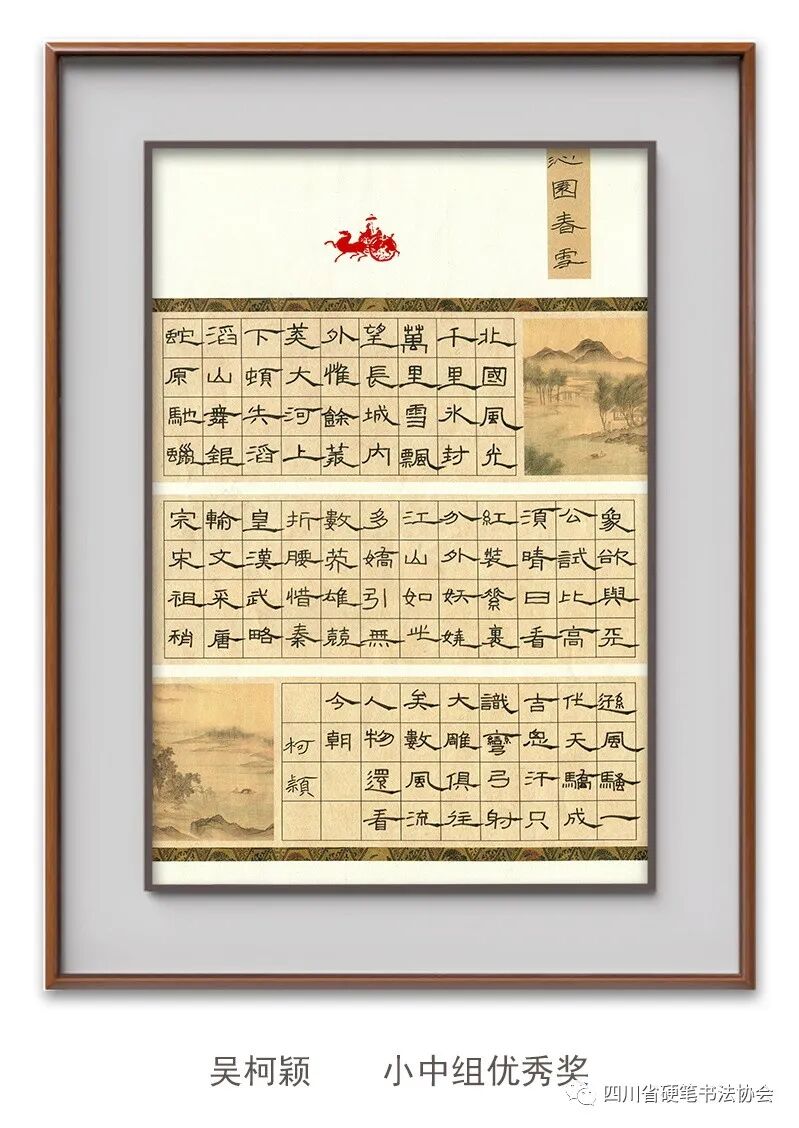 沁園春雪
北國風光
千里冰封
萬里雪飄
望長城内
外惟餘莽
莽大河上
下頓失滔
滔山舞銀
蛇原馳蠟
象欲與天
公試比高
須晴日看
紅裝素裹
分外妖嬈
江山如此
多嬌引無
數英雄競
折腰惜秦
皇漢武略
輸文采唐
宗宋祖稍
遜風騷一
代天驕成
吉思汗只
識彎弓射
大雕俱往
矣數風流
人物還看
今朝
柯穎
吴柯颖 小中组优秀奖
四川省硬笔书法协会